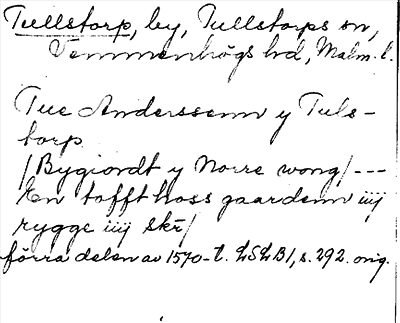 Tullstorp, by, Tullstorps sn,
Vemmenhögs hd, Malm. l.
Tue Anderssenn y Tuls-
torp
/Bygiordt y Norre wong/---
En tofft hoss gaardenn iiij
rygge iiij skr/
förra delen av 1570-t. LSLB1, s. 292. orig.